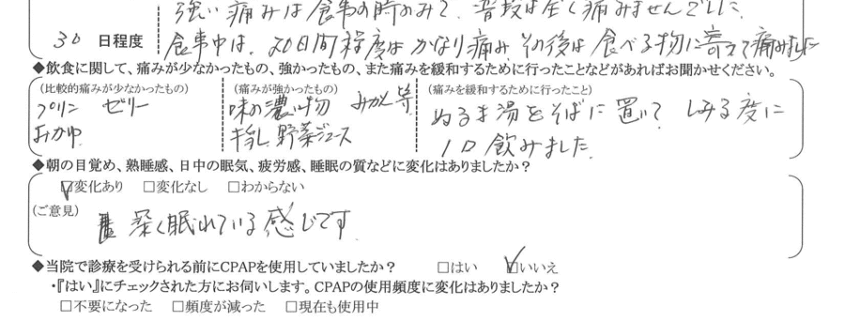 強い痛みは食事の時のみで、普段は全く痛みませんでした。
30 日程度
食事中は、20日間程度はかなり痛み、その後は食べる物に寄って痛みました
◆飲食に関して、痛みが少なかったもの、強かったもの、また痛みを緩和するために行ったことなどがあればお聞かせください。
(比較的痛みが少なかったもの) (痛みが強かったもの) (痛みを緩和するために行ったこと)
プリン ゼリー 味の濃い物 みかん等 ぬるま湯をそばに置いて しみる度に
おかゆ 野菜ジュース 1口飲みました。
◆朝の目覚め、熟睡感、日中の眠気、疲労感、睡眠の質などに変化はありましたか?
☑変化あり □変化なし □わからない
(ご意見) 深く眠れている感じです
◆当院で診療を受けられる前にCPAPを使用していましたか? □はい ☑いいえ
・『はい』にチェックされた方にお伺いします。CPAPの使用頻度に変化はありましたか?
□不要になった □頻度が減った □現在も使用中